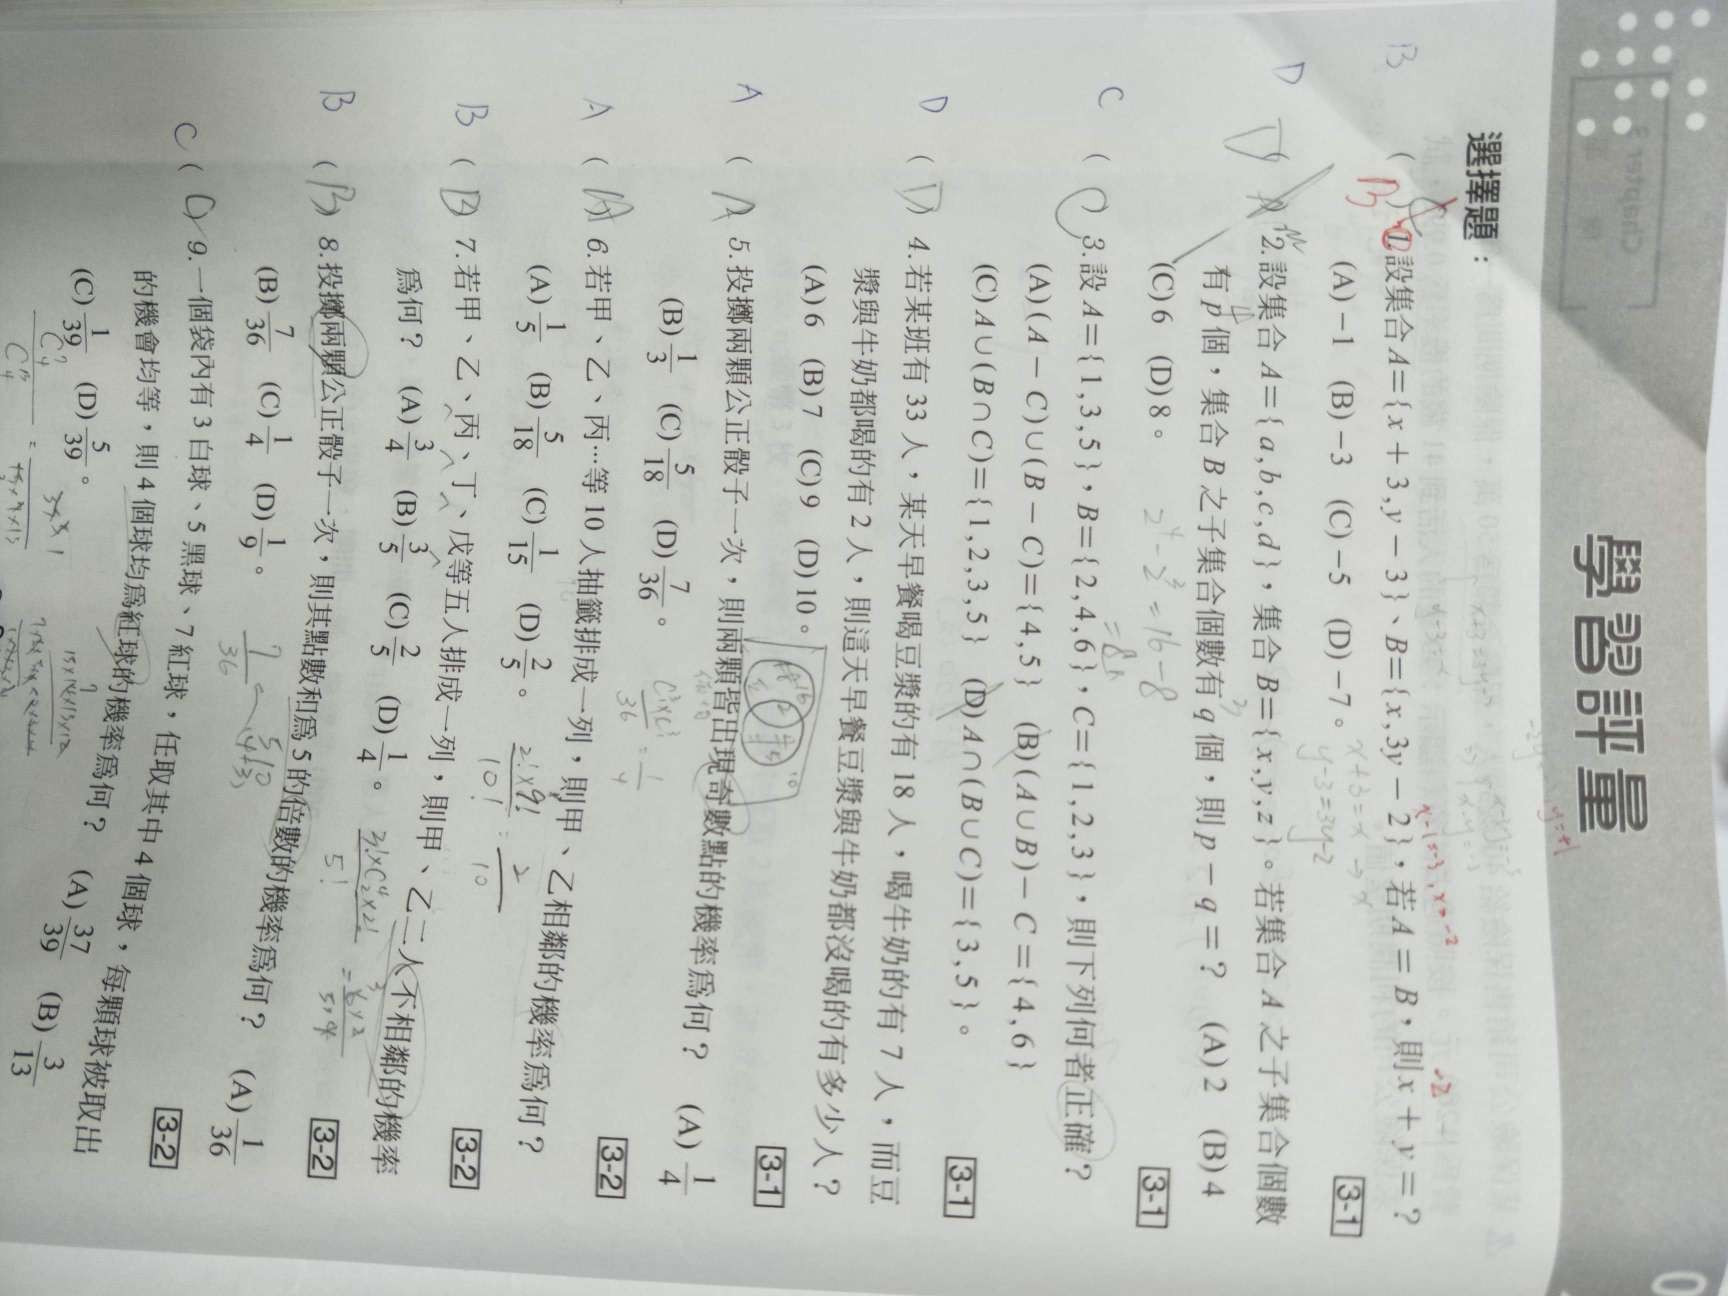 學習評量
選擇題：
B ( B ) 1. 設集合 A＝{x＋3,y－3}、B＝{x,3y－2}，若 A＝B，則 x＋y＝？
(A)－1 (B)－3 (C)－5 (D)－7。 3-1
x+3=x
y-3=3y-2
D 2. 設集合 A＝{a,b,c,d}，集合 B＝{x,y,z}。若集合 A 之子集合個數
有 p 個，集合 B 之子集合個數有 q 個，則 p－q＝？ (A) 2 (B) 4
(C) 6 (D) 8。 3-1
2⁴-2³=16-8
=8
C ( C ) 3. 設 A＝{1,3,5}，B＝{2,4,6}，C＝{1,2,3}，則下列何者正確？
(A) (A－C)∪(B－C)＝{4,5} (B) (A∪B)－C＝{4,6}
(C) A∪(B∩C)＝{1,2,3,5} (D) A∩(B∪C)＝{3,5}。 3-1
D ( D ) 4. 若某班有 33 人，某天早餐喝豆漿的有 18 人，喝牛奶的有 7 人，而豆
漿與牛奶都喝的有 2 人，則這天早餐豆漿與牛奶都沒喝的有多少人？
(A) 6 (B) 7 (C) 9 (D) 10。 3-1
A ( A ) 5. 投擲兩顆公正骰子一次，則兩顆皆出現奇數點的機率為何？ (A) 1/4
(B) 1/3 (C) 5/18 (D) 7/36。 3-2
A ( A ) 6. 若甲、乙、丙…等 10 人抽籤排成一列，則甲、乙相鄰的機率為何？
(A) 1/5 (B) 5/18 (C) 1/15 (D) 2/5。 3-2
2!×9!/10! = 2/10
B ( B ) 7. 若甲、乙、丙、丁、戊等五人排成一列，則甲、乙二人不相鄰的機率
為何？ (A) 3/4 (B) 3/5 (C) 2/5 (D) 1/4。 3-2
B ( B ) 8. 投擲兩顆公正骰子一次，則其點數和為 5 的倍數的機率為何？ (A) 1/36
(B) 7/36 (C) 1/4 (D) 1/9。 3-2
7/36
C ( C ) 9. 一個袋內有 3 白球、5 黑球、7 紅球，任取其中 4 個球，每顆球被取出
的機會均等，則 4 個球均為紅球的機率為何？ (A) 37/39 (B) 3/13
(C) 1/39 (D) 5/39。